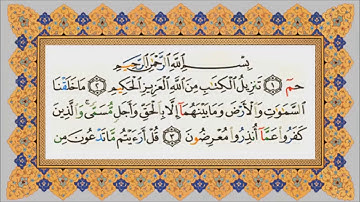 بِسْمِ اللَّهِ الرَّحْمَٰنِ الرَّحِيمِ
حمٓ ۝١ تَنزِيلُ الْكِتَابِ مِنَ اللَّهِ الْعَزِيزِ الْحَكِيمِ ۝٢ مَا خَلَقْنَا
السَّمَٰوَٰتِ وَالْأَرْضَ وَمَا بَيْنَهُمَآ إِلَّا بِالْحَقِّ وَأَجَلٍ مُّسَمًّى وَالَّذِينَ
كَفَرُوا عَمَّآ أُنذِرُوا مُعْرِضُونَ ۝٣ قُلْ أَرَءَيْتُم مَّا تَدْعُونَ مِن